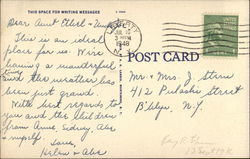 THIS SPACE FOR WRITING MESSAGES
Dear Aunt Ethel +
This is an ideal
place for us. We're
having a wonderful
time
and the weather has
been just grand.
With best regards to
you and the children
from Anne, Sidney, Abe
and myself
Love,
Helen & Abe
LIBERTY
JUL 10
3 PM
1948
N.Y.
POST CARD
Mr & Mrs. J. Stern
412 Pulaski Street
B'klyn, N.Y.